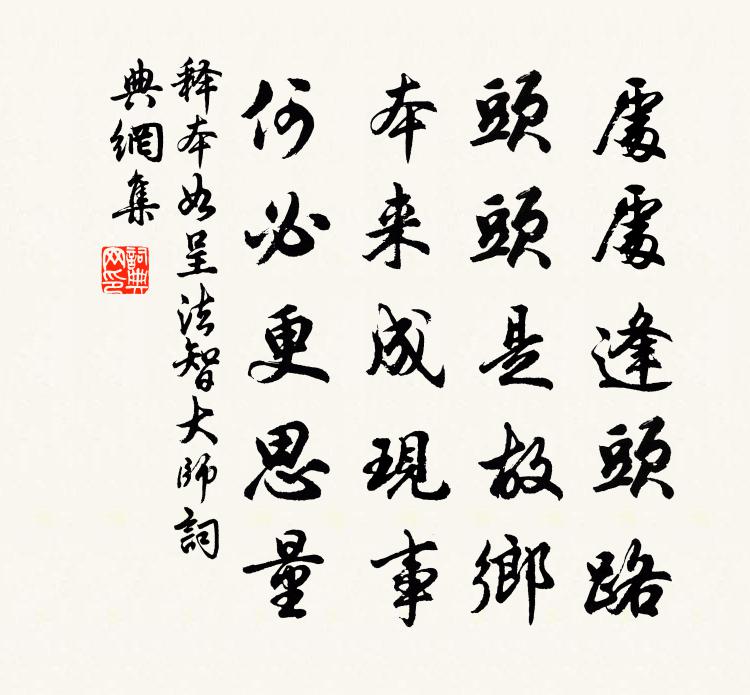 處處逢頭路
頭頭是故鄉
本来成現事
何必更思量
释本如呈法智大師詞
典網集
詞典
网印